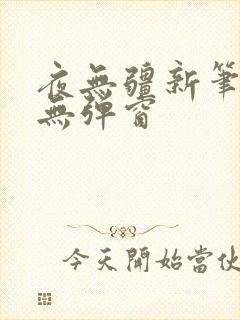 夜無疆新筆
無彈窗
今天開始當伙